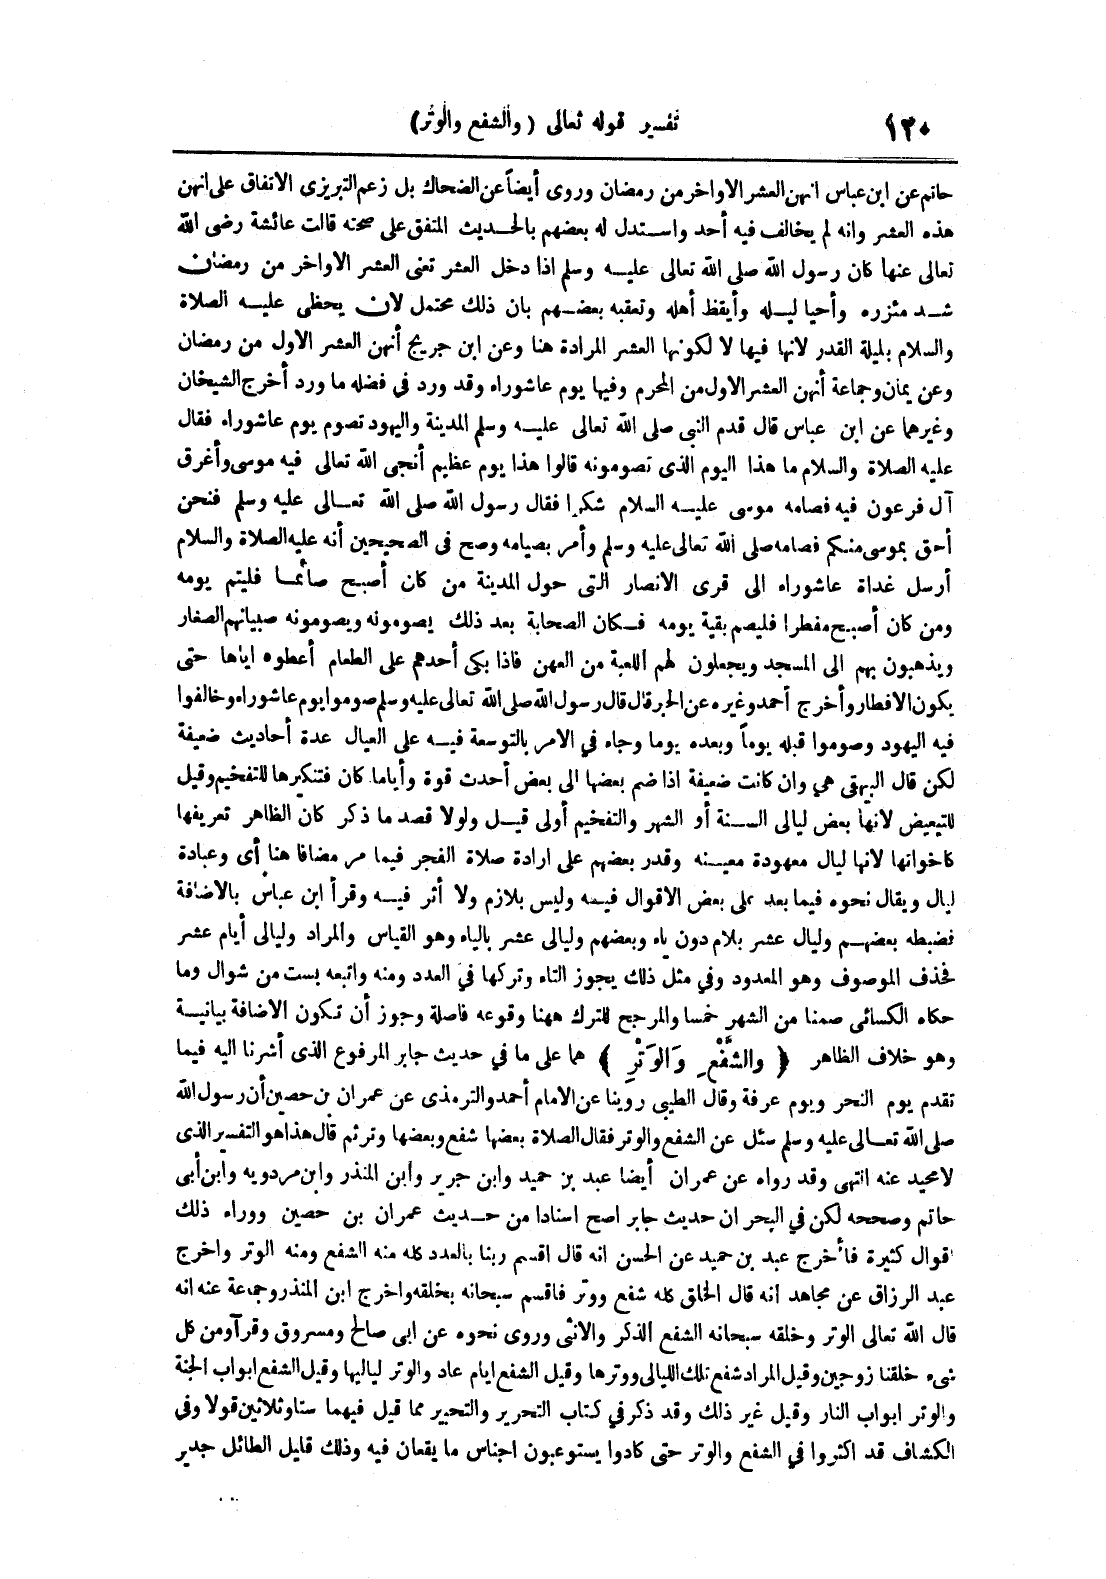 ١٢٠
تفسير قوله تعالى (والشفع والوتر)
حاتم عن ابن عباس انهن العشر الاواخر من رمضان وروى أيضاً عن الضحاك بل زعم التبريزى الاتفاق على انهن
هذه العشر وانه لم يخالف فيه أحد واستدل له بعضهم بالحديث المتفق على صحته قالت عائشة رضى الله
تعالى عنها كان رسول الله صلى الله تعالى عليه وسلم اذا دخل العشر تعنى العشر الاواخر من رمضان
شد مئزره وأحيا ليله وأيقظ أهله وتعقبه بعضهم بان ذلك محتمل لان يحظى عليه الصلاة
والسلام بليلة القدر لانها فيها لا لكونها العشر المرادة هنا وعن ابن جريج أنهن العشر الاول من رمضان
وعن يمان وجماعة أنهن العشر الاول من المحرم وفيها يوم عاشوراء وقد ورد في فضله ما ورد أخرج الشيخان
وغيرهما عن ابن عباس قال قدم النبى صلى الله تعالى عليه وسلم المدينة واليهود تصوم يوم عاشوراء فقال
عليه الصلاة والسلام ما هذا اليوم الذى تصومونه قالوا هذا يوم عظيم أنجى الله تعالى فيه موسى وأغرق
آل فرعون فيه فصامه موسى عليه السلام شكرا فقال رسول الله صلى الله تعالى عليه وسلم فنحن
أحق بموسى منكم فصامه صلى الله تعالى عليه وسلم وأمر بصيامه وصح في الصحيحين أنه عليه الصلاة والسلام
أرسل غداة عاشوراء الى قرى الانصار التى حول المدينة من كان أصبح صائما فليتم يومه
ومن كان أصبح مفطرا فليصم بقية يومه فكان الصحابة بعد ذلك يصومونه ويصومونه صبيانهم الصغار
ويذهبون بهم الى المسجد ويجعلون لهم اللعبة من العهن فاذا بكى أحدهم على الطعام أعطوه اياها حتى
يكون الافطار وأخرج أحمد وغيره عن الحبر قال قال رسول الله صلى الله تعالى عليه وسلم صوموا يوم عاشوراء وخالفوا
فيه اليهود وصوموا قبله يوماً وبعده يوما وجاء في الامر بالتوسعة فيه على العيال عدة أحاديث ضعيفة
لكن قال البيهقى هي وان كانت ضعيفة اذا ضم بعضها الى بعض أحدث قوة وأياما كان فتنكيرها للتفخيم وقيل
للتبعيض لانها بعض ليالى السنة أو الشهر والتفخيم أولى قيل ولولا قصد ما ذكر كان الظاهر تعريفها
كاخواتها لانها ليال معهودة معينه وقدر بعضهم على ارادة صلاة الفجر فيما مر مضافا هنا أى وعبادة
ليال ويقال نحوه فيما بعد على بعض الاقوال فيه وليس بلازم ولا أثر فيه وقرأ ابن عباس بالاضافة
فضبطه بعضهم وليال عشر بلام دون ياء وبعضهم وليالى عشر بالياء وهو القياس والمراد وليالى أيام عشر
فحذف الموصوف وهو المعدود وفي مثل ذلك يجوز التاء وتركها في العدد ومنه واتبعه بست من شوال وما
حكاه الكسائى صمنا من الشهر خمسا والمرجح للترك ههنا وقوعه فاصلة وجوز أن تكون الاضافة بيانية
وهو خلاف الظاهر ﴿ والشَّفْعِ وَالوَتْرِ ﴾ هما على ما في حديث جابر المرفوع الذى أشرنا اليه فيما
تقدم يوم النحر ويوم عرفة وقال الطيبى روينا عن الامام أحمد والترمذى عن عمران بن حصين أن رسول الله
صلى الله تعالى عليه وسلم سئل عن الشفع والوتر فقال الصلاة بعضها شفع وبعضها وتر ثم قال هذا هو التفسير الذى
لا محيد عنه انتهى وقد رواه عن عمران أيضا عبد بن حميد وابن جرير وابن المنذر وابن مردويه وابن أبى
حاتم وصححه لكن في البحر ان حديث جابر اصح اسنادا من حديث عمران بن حصين ووراء ذلك
اقوال كثيرة فأخرج عبد بن حميد عن الحسن انه قال اقسم ربنا بالعدد كله منه الشفع ومنه الوتر واخرج
عبد الرزاق عن مجاهد انه قال الخلق كله شفع ووتر فاقسم سبحانه بخلقه واخرج ابن المنذر وجماعة عنه انه
قال الله تعالى الوتر وخلقه سبحانه الشفع الذكر والانثى وروى نحوه عن ابى صالح ومسروق وقرآ ومن كل
شىء خلقنا زوجين وقيل المراد شفع تلك الليالى ووترها وقيل الشفع ايام عاد والوتر لياليها وقيل الشفع ابواب الجنة
والوتر ابواب النار وقيل غير ذلك وقد ذكر في كتاب التحرير والتحبير مما قيل فيهما ستا وثلاثين قولا وفي
الكشاف قد اكثروا في الشفع والوتر حتى كادوا يستوعبون اجناس ما يقعان فيه وذلك قليل الطائل جدير